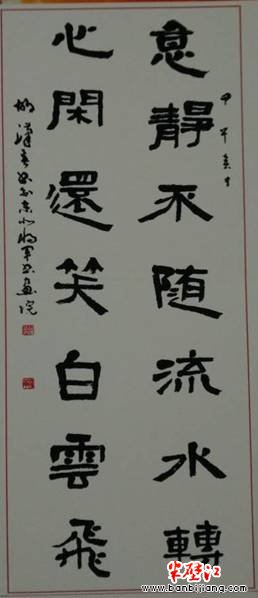 意静不随流水轉
甲午春月
心閑還笑白雲飛
半壁江
www.banbijiang.com